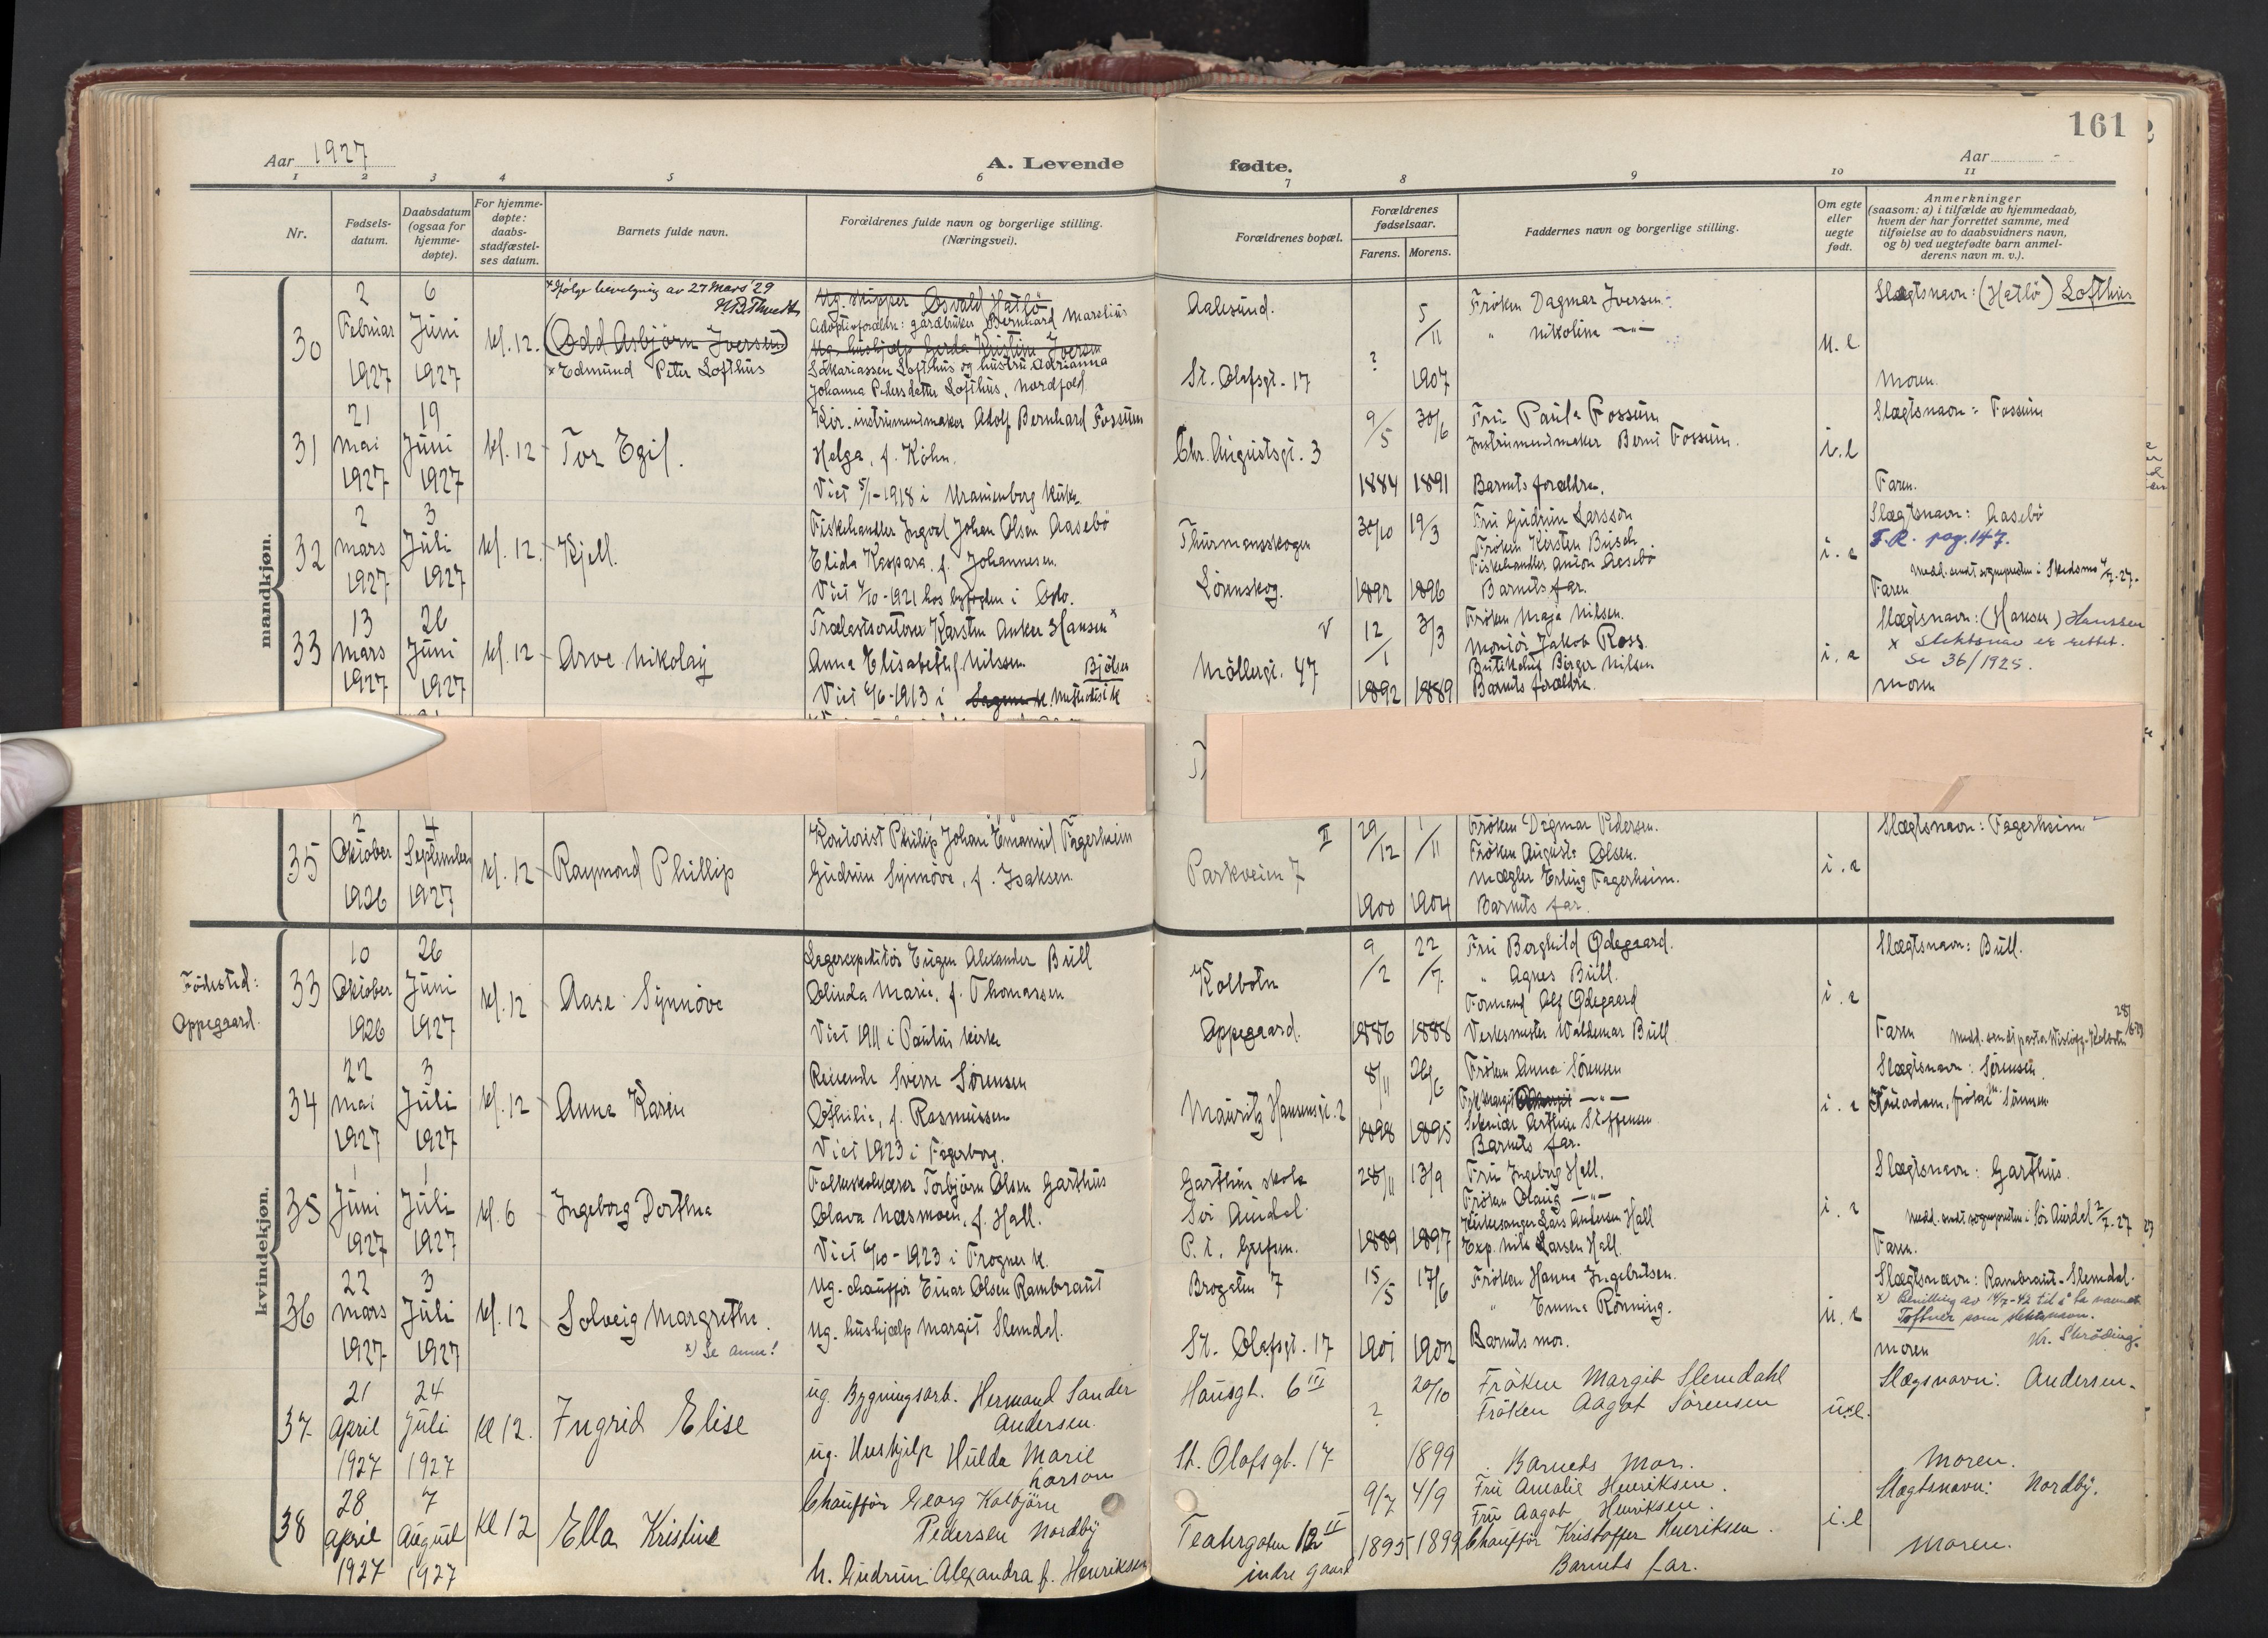 161
Aar 1927
A. Levende
fødte.
Aar
1 2 3 4 5 6 7 8 9 10 11
Nr.
Fødsels-
datum.
Daabsdatum
(ogsaa for
hjemme-
døpte).
For hjemme-
døpte:
daabs-
stadfæstel-
ses datum.
Barnets fulde navn.
Forældrenes fulde navn og borgerlige stilling.
(Næringsvei).
Forældrenes bopæl.
Forældrenes
fødselsaar.
Farens. Morens.
Faddernes navn og borgerlige stilling.
Om egte
eller
uegte
født.
Anmerkninger
(saasom: a) i tilfælde av hjemmedaab,
hvem der har forrettet samme, med
tilføielse av to daabsvidners navn,
og b) ved uegtefødte barn anmel-
derens navn m. v.).
mandkjøn.
30
2
Februar
1927
6
Juni
1927
kl. 12.
x Ifølge bevilgning av 27 Mars '29
(Odd Asbjørn Iversen)
x Edmund Peter Lofthus
Ug. skipper Osvald Hatlö
Adoptivforældre: gårdbruker Bernhard Marelius
Ug. hushjelp Gerda Kristine Iversen
Sakariassen Lofthus og hustru Adrianna
Johanna Pedersdatter Lofthus, Nordfold
Aalesund.
St. Olafsgt. 17
?
5/11
1907
Fröken Dagmar Iversen.
" Nikoline —"—
u. e
Slægtsnavn: (Hatlö) Lofthus
Moren.
31
21
Mai
1927
19
Juni
1927
kl. 12
Tor Egil.
Kir. instrumentmaker Adolf Bernhard Fossum
Helga, f. Köhn.
Viet 5/1-1918 i Uranienborg kirke
Chr. Augustsgt. 3
9/5
1884
30/6
1891
Fru Paula Fossum
Instrumentmaker Bernt Fossum.
Barnets forældre.
i. e
Slægtsnavn: Fossum
Faren.
32
2
Mars
1927
3
Juli
1927
kl. 12.
Kjell.
Fiskehandler Ingvol Johan Olsen Aasebö
Elida Kaspara, f. Johannesen.
Viet 1/10-1921 hos byfogden i Oslo.
Thurmannsskogen
Lørenskog.
30/10
1892
19/3
1896
Fru Gudrun Larsson
Fröken Kirsten Busch
Fiskehandler Anton Aasebö
Barnets far.
i. e
Slægtsnavn: Aasebö
F.R. pag. 147.
Medd. sendt sogneprsten i Skedsmo 4/7-27.
Faren
33
13
Mars
1927
26
Juni
1927
kl. 12
Arve Nikolay
Trælastsorterer Karsten Anker Hansen x
Anna Elisabeth f. Nilssen
Bjölsen
Viet 6/6-1913 i Sagene k. Metodistk
Möllergt. 47
V
12/1
1892
3/3
1889
Fröken Maja Nilsen.
Montör Jakob Ross.
Butikkelus Birger Nilsen
Barnets forældre.
i. e
Slægtsnavn: (Hansen) Hanssen
x Slektsnav er rettet.
Se 36/1925.
Moren
35
2
Oktober
1926
4
September
1927
kl. 12
Raymond Phillip
Kontorist Philip Johan Emanuel Fagerheim
Gudrun Synnöve, f. Isaksen.
II
Parkveien 7
29/12
1900
1/11
1904
Fröken Dagmar Pedersen.
Fröken Augusta Olsen.
Mægler Erling Fagerheim.
Barnets far.
i. e
Slægtsnavn: Fagerheim
kvindekjøn.
Födested:
Oppegaard.
33
10
Oktober
1926
26
Juni
1927
kl. 12
Aase Synnöve
Lagerexpeditör Eugen Alexander Bull
Olinda Marie, f. Thomassen
Viet 1911 i Paulus kirke
Kolbotn
Oppegaard.
9/2
1886
22/7
1888
Fru Borghild Ödegaard.
" Agnes Bull.
Formand Olf Ödegaard
Verksmester Waldemar Bull
i. e
Slægtsnavn: Bull.
Faren Medd. sendt pastor Wisløff, Kolbotn
34
22
Mai
1927
3
Juli
1927
kl. 12
Anna Karin
Reisende Sverre Sörensen
Othilie, f. Rasmussen
Viet 1923 i Fagerborg.
Mauritz Hansensgt. 2
8/11
1898
26/6
1895
Fröken Anna Sörensen
Barnets far.
i. e
Slægtsnavn: Sörensen.
35
1
Juni
1927
1
Juli
1927
kl. 6
Ingeborg Dorthea
Folkeskolelærer Torbjörn Olsen Garthus
Olava Næsmoen, f. Hall.
Viet 6/10-1923 i Frogner k.
Garthus skole
Sör Aurdal.
P.t. Grefsen.
28/11
1889
13/9
1897
Fru Ingeborg Hall.
Fröken Olaug —"—
Kirkesanger Lars Andersen Hall
Exp. Nils Larsen Hall.
i. e
Slægtsnavn: Garthus.
Medd. sendt sogneprsten i Sör Aurdal 2/7-27
Faren.
36
22
Mars
1927
3
Juli
1927
kl. 12
Solveig Margrethe.
x) Se anm!
Ug. chaufför Einar Olsen Rambraut
Ug. hushjælp Margit Slemdal.
Brogaten 7
St. Olafsgt. 17
15/5
1901
17/6
1902
Fröken Hanna Ingebrtsen.
" Emma Rönning.
Barnets mor.
u. e
Slægtsnavn: Rambraut-Slemdal.
x) Bevilling av 14/7-42 til å ta navnet
Toftner som slektsnavn.
Kr. Schröding.
Moren
37
21
April
1927
24
Juli
1927
Kl 12.
Ingrid Elise
ug. Bygningsarb. Hermand Sander
Andersen.
ug. Hushjelp Hulda Marie
Larson
Hausgt. 6 III
St. Olafsgt. 17
?
20/10
1899
Fröken Margit Slemdahl
Fröken Aagot Sörensen
Barnets Mor.
u.e.
Slægsnavn: Andersen.
Moren.
38
28
April
1927
7
August
1927
Kl 12
Ella Kristine
Chaufför Georg Kolbjörn
Pedersen Nordby
h. Gudrun Alexandra f. Henriksen
Teatergaten 12 II
indre gaard
9/7
1895
4/9
1899
Fru Amalie Henriksen.
Fru Aagot Henriksen.
Chaufför Kristoffer Henriksen.
Barnets far.
i.e
Slægtsnavn: Nordby.
Moren.